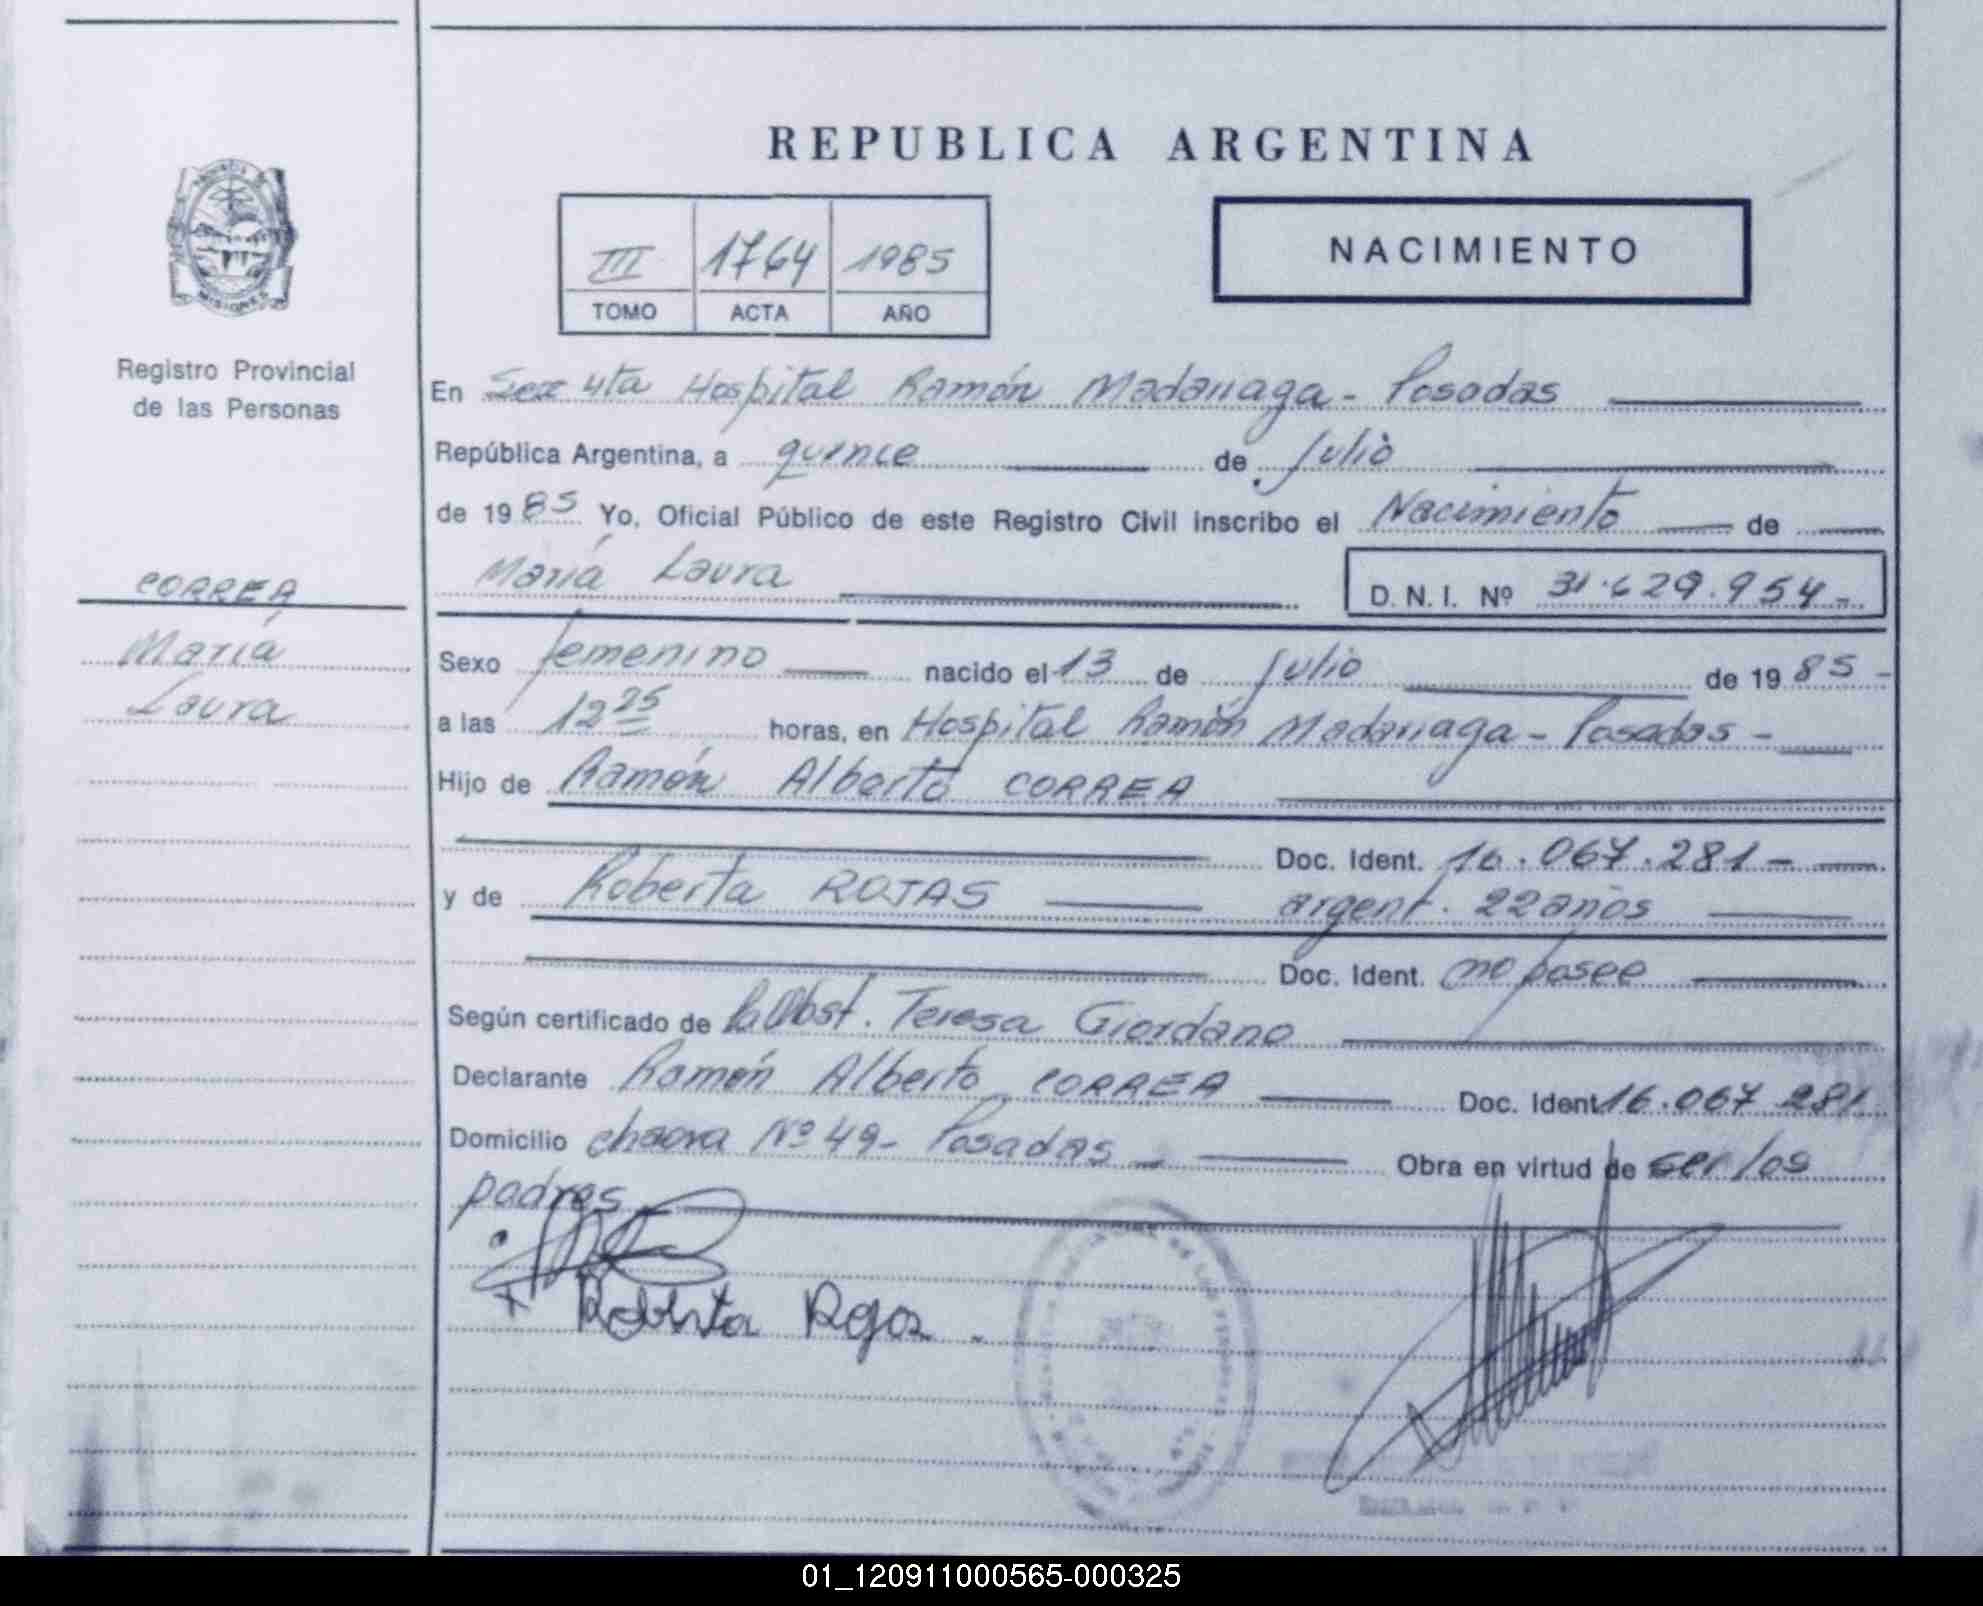 REPUBLICA ARGENTINA
III 1764 1985
TOMO ACTA AÑO
NACIMIENTO
MISIONES
Registro Provincial
de las Personas
CORREA
María
Laura
En Secc 4ta Hospital Ramón Madariaga - Posadas
República Argentina, a quince de Julio
de 1985 Yo, Oficial Público de este Registro Civil inscribo el Nacimiento de
María Laura D.N.I. Nº 31.629.954-
Sexo femenino nacido el 13 de Julio de 1985-
a las 12 25 horas, en Hospital Ramón Madariaga - Posadas -
Hijo de Ramón Alberto CORREA
Doc. Ident. 16.067.281-
y de Roberta ROJAS argent. 22 años
Doc. Ident. no posee
Según certificado de Obst. Teresa Giordano
Declarante Ramón Alberto CORREA Doc. Ident 16.067 281
Domicilio chacra Nº 49- Posadas - Obra en virtud de ser los
padres
Roberta Rojas
01_120911000565-000325